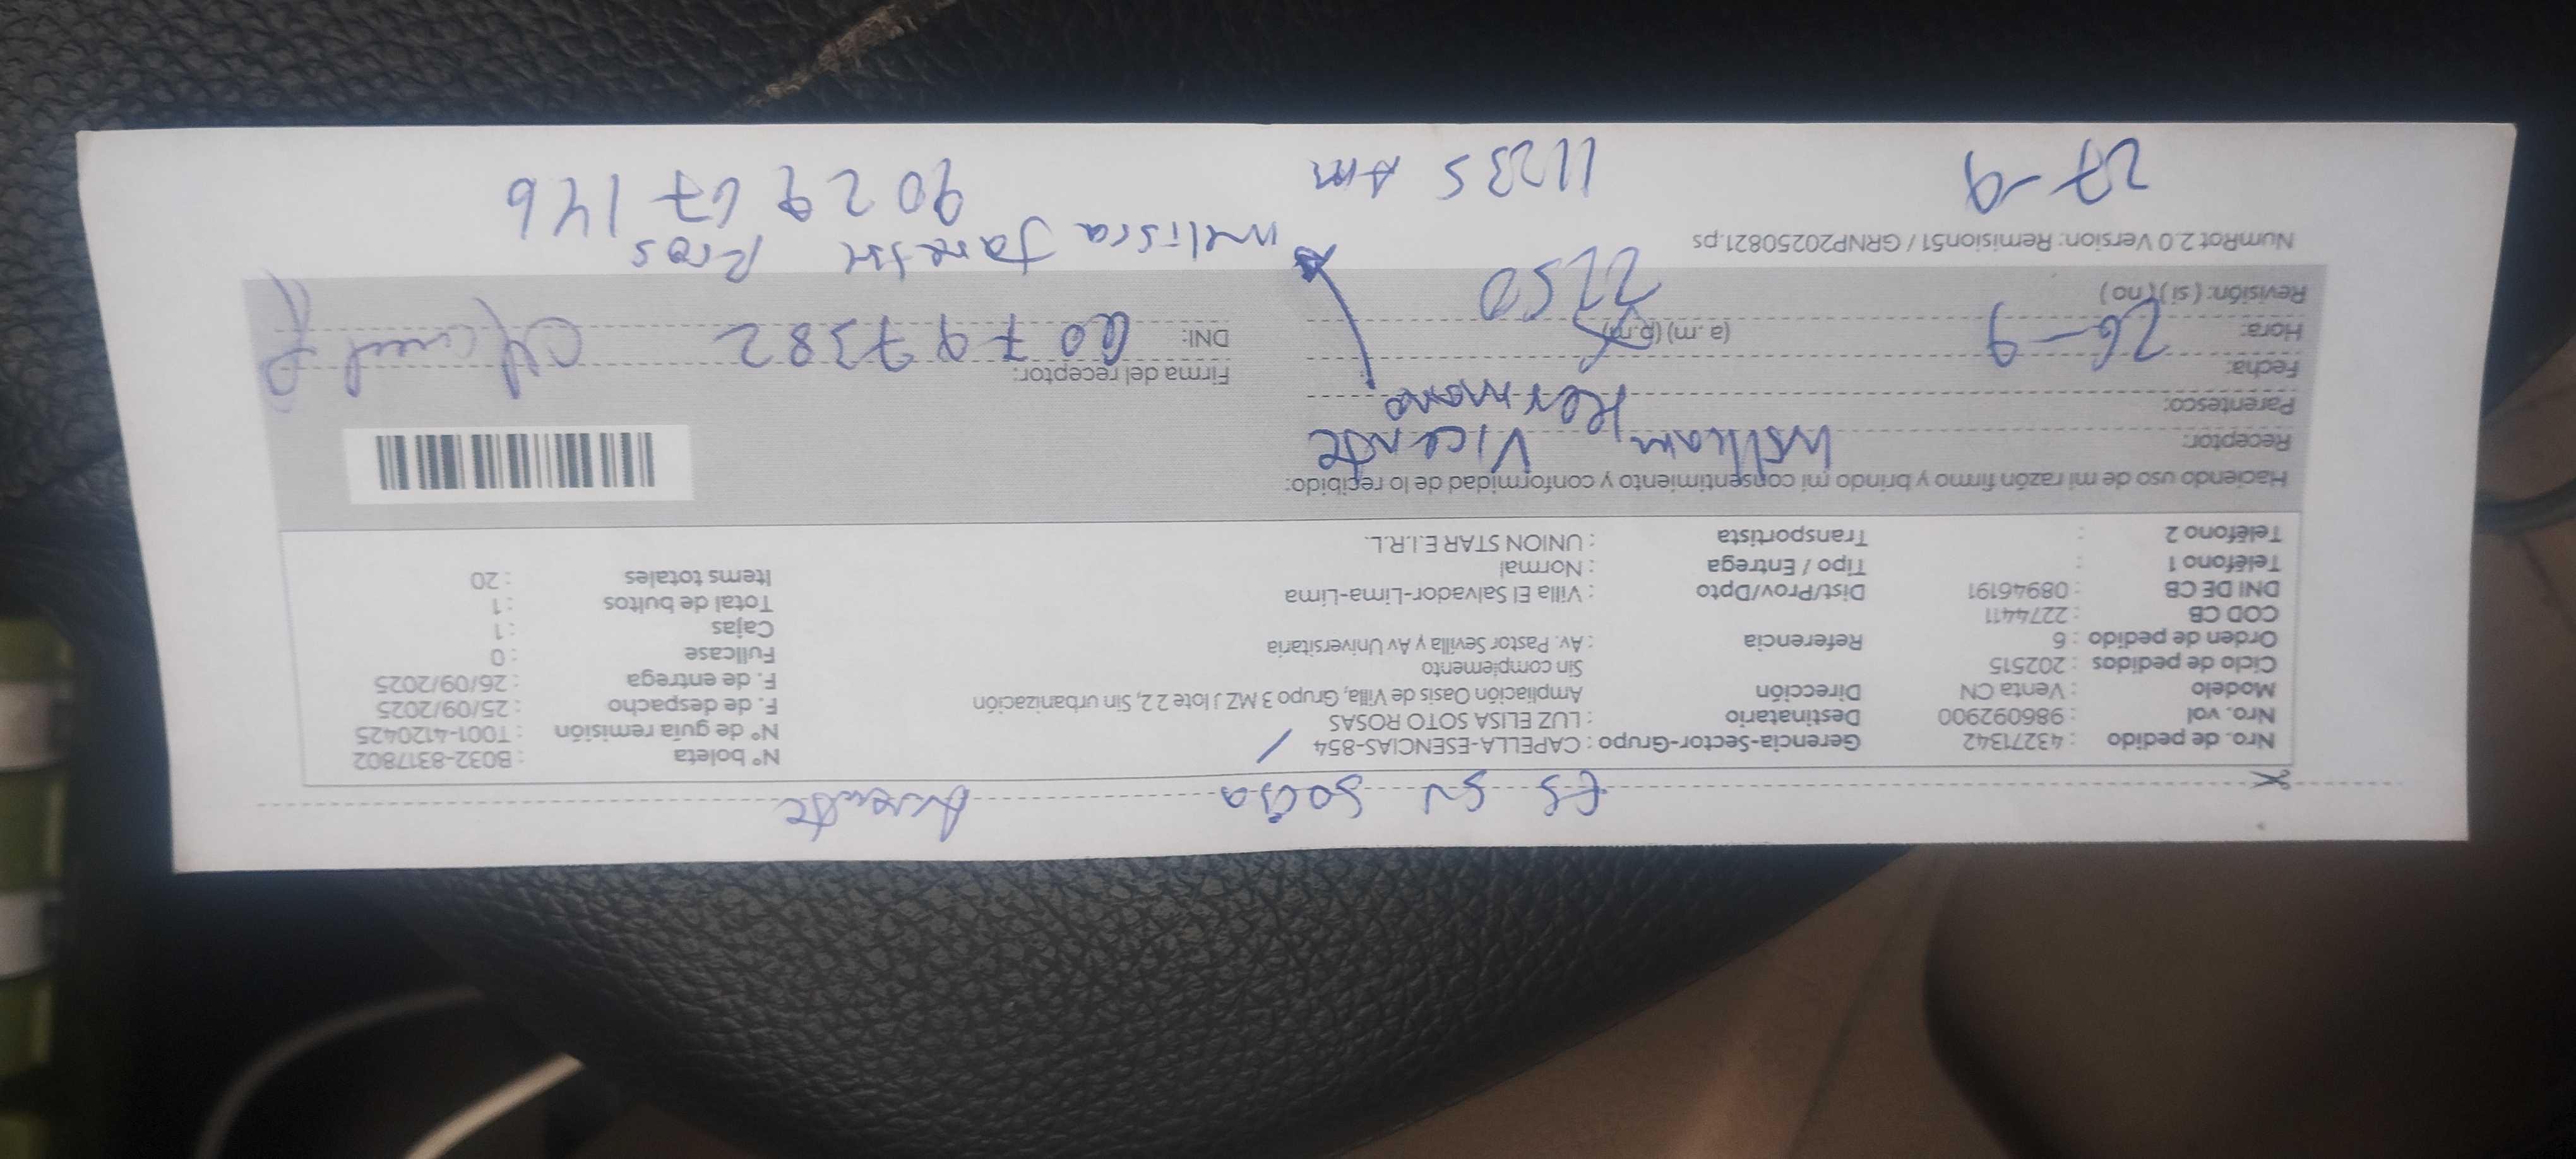 ES SU SOCIA
Nro. de pedido : 43271342 Gerencia-Sector-Grupo : CAPELLA-ESENCIAS-854 N° boleta : B032-8317802
Nro. vol : 986092900 Destinatario : LUZ ELISA SOTO ROSAS N° de guía remisión : T001-4120425
Modelo : Venta CN Dirección Ampliación Oasis de Villa, Grupo 3 MZ J lote 2 2, Sin urbanización F. de despacho : 25/09/2025
Ciclo de pedidos : 202515 Sin complemento F. de entrega : 26/09/2025
Orden de pedido : 6 Referencia : Av. Pastor Sevilla y Av Universitaria Fullcase : 0
COD CB : 2274411 Cajas : 1
DNI DE CB : 08946191 Dist/Prov/Dpto : Villa El Salvador-Lima-Lima Total de bultos : 1
Teléfono 1 : Tipo / Entrega : Normal Items totales : 20
Teléfono 2 : Transportista : UNION STAR E.I.R.L.
Haciendo uso de mi razón firmo y brindo mi consentimiento y conformidad de lo recibido:
Receptor: William Vicente
Parentesco: Hermano
Fecha: 26-9 Firma del receptor:
Hora: (a. m) (p.m) 2250 DNI: 60797382
Revisión: ( si ) ( no )
NumRot 2.0 Version: Remision51 / GRNP20250821.ps
Melissa Rios
27-9 11235 Am 902967146